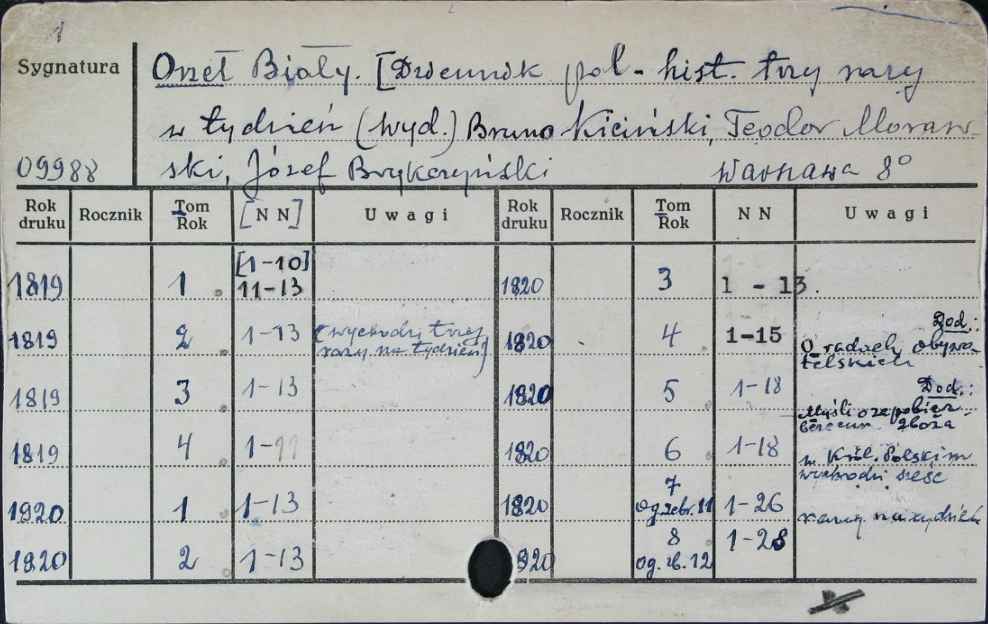 Sygnatura
Orzeł Biały. [Dziennik pol-hist. trzy razy
w tydzień (wyd.) Bruno Kiciński, Teodor Moraw-
ski, Józef Brykczyński Warszawa 8°
09988
Rok druku Rocznik Tom Rok [NN] Uwagi Rok druku Rocznik Tom Rok NN Uwagi
1819 1 [1-10] 11-13 1820 3 1 - 13.
1819 2 1-13 (wychodzi trzy razy na tydzień) 1820 4 1-15 Dod.: O radach obywatelskich
1819 3 1-13 1820 5 1-18 Dod.: Myśli o
1819 4 1-11 1820 6 1-18 zboża w Król. Polskim
1820 1 1-13 1820 7 og. zebr. 11 1-26 wychodzi sześć razy na tydzień
1820 2 1-13 1820 8 og. zb. 12 1-28